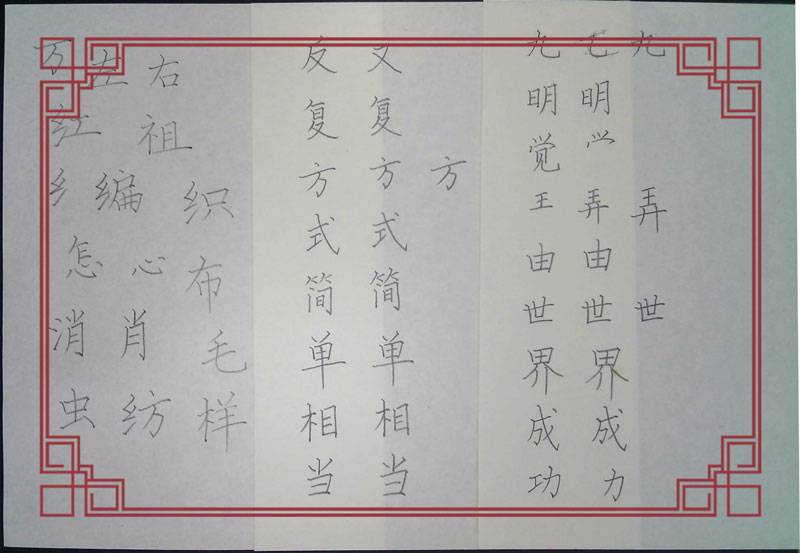 万 左 右
红 祖
纟 编 织
怎 心 布
消 肖 毛
虫 纺 样
反复方式简单相当
又复方式简单相当
方
九明觉王由世界成功
明弄由世界成力
九 弄 世